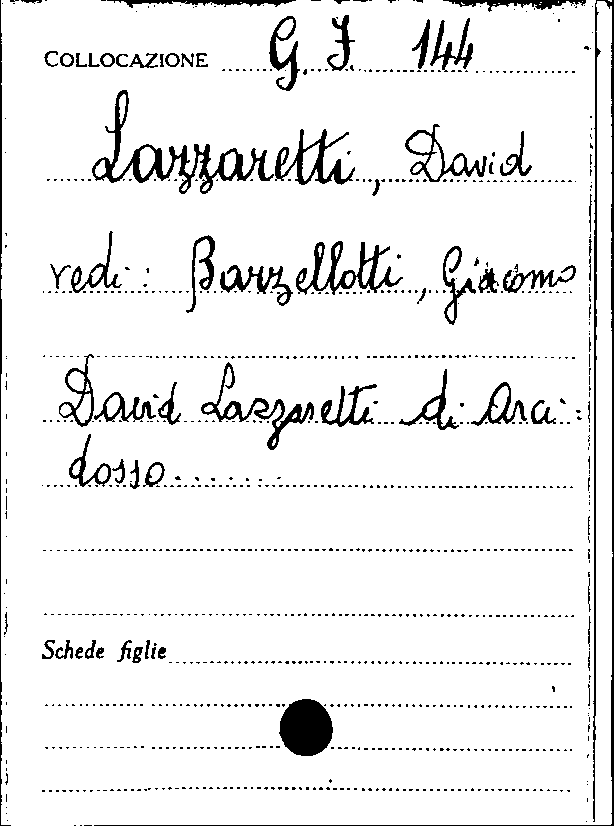 COLLOCAZIONE G. J. 144
Lazzaretti, David
vedi: Barzellotti, Giacomo
David Lazzaretti di Arci:
dosso.......
Schede figlie